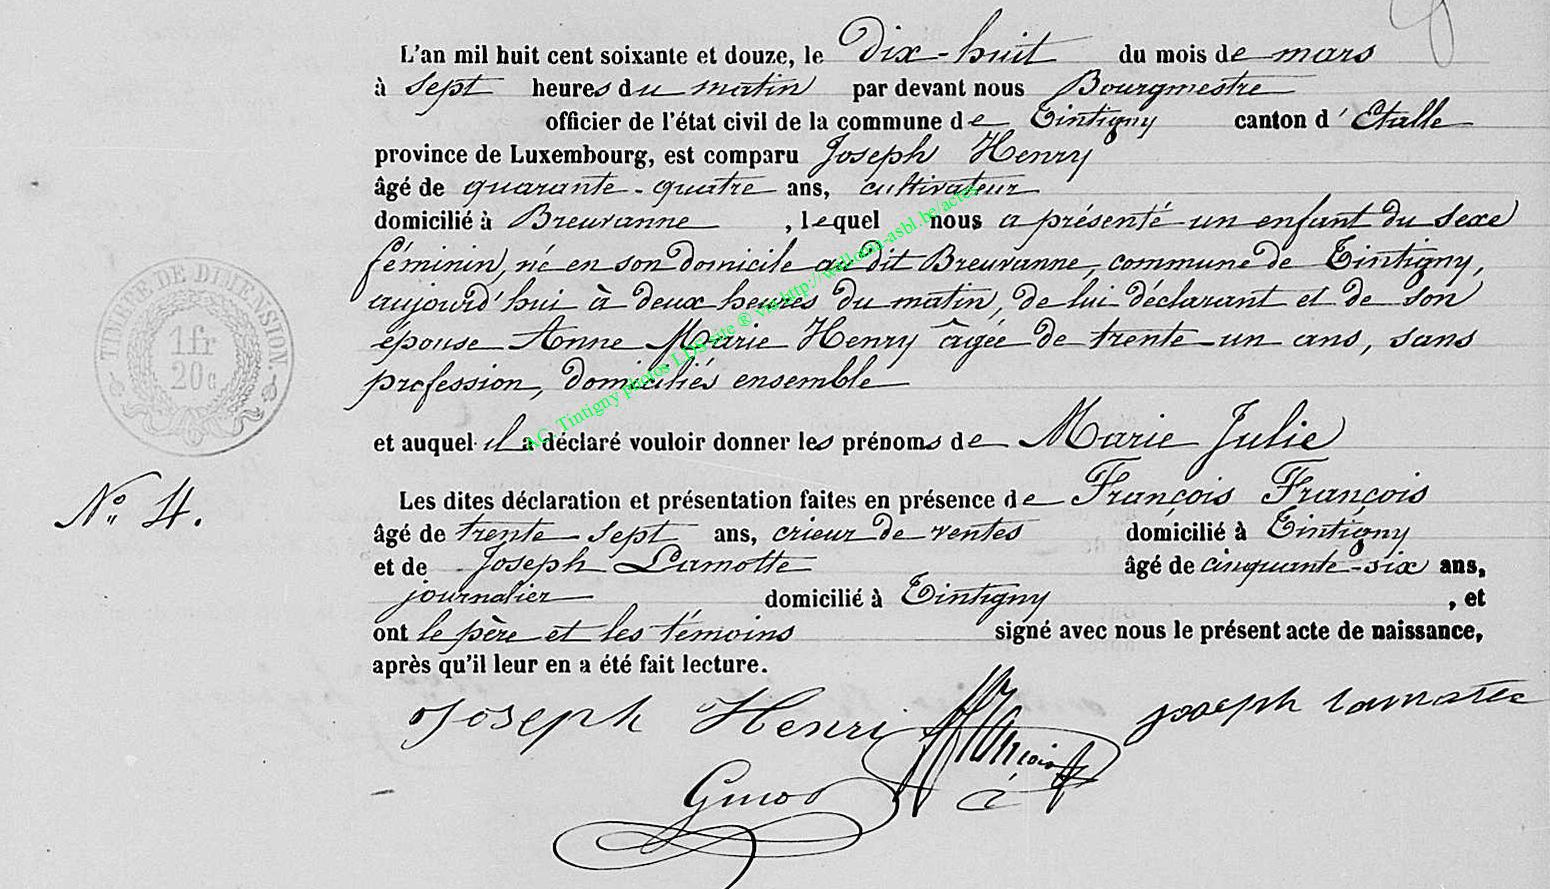 L'an mil huit cent soixante et douze, le Dix-huit du mois de mars
à sept heures du matin par devant nous Bourgmestre
officier de l'état civil de la commune de Tintigny canton d'Etalle
province de Luxembourg, est comparu Joseph Henry
âgé de quarante-quatre ans, cultivateur
domicilié à Breuvanne, lequel nous a présenté un enfant du sexe
féminin, né en son domicile au dit Breuvanne, commune de Tintigny,
aujourd'hui à deux heures du matin, de lui déclarant et de son
épouse Anne Marie Henry âgée de trente-un ans, sans
profession, domiciliés ensemble
et auquel il a déclaré vouloir donner les prénoms de Marie Julie
Les dites déclaration et présentation faites en présence de François François
âgé de trente-sept ans, crieur de ventes domicilié à Tintigny
et de Joseph Lamotte âgé de cinquante-six ans,
journalier domicilié à Tintigny, et
ont le père et les témoins signé avec nous le présent acte de naissance,
après qu'il leur en a été fait lecture.
Joseph Henri joseph
TIMBRE DE DIMENSION.
1 fr
20 c
No. 4.
AG. Tintigny photos LDS site ® via http://wallonia-asbl.be/actes